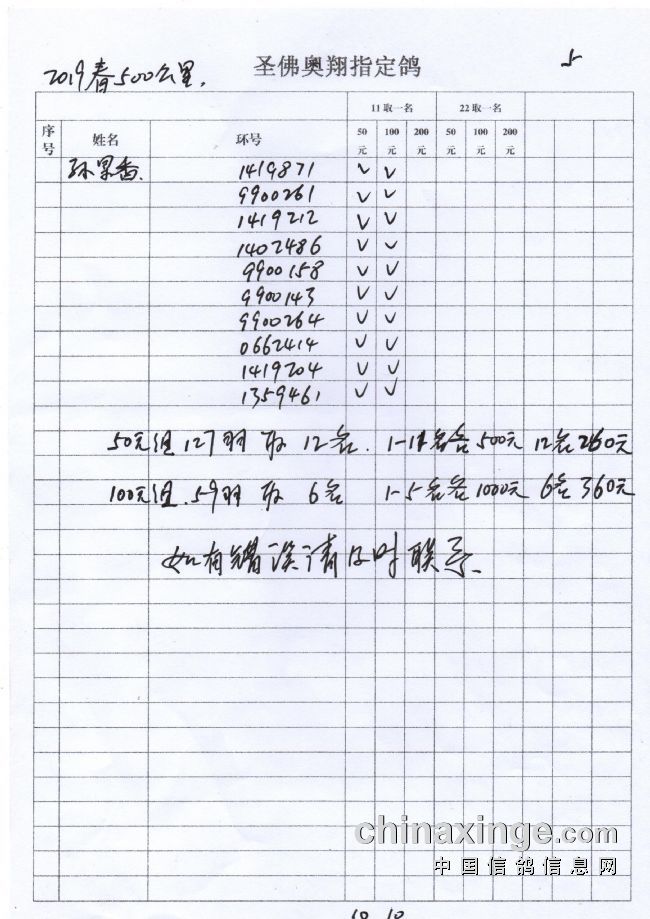 2019春500公里. 圣佛奥翔指定鸽 5
11取一名 22取一名
序号 姓名 环号 50元 100元 200元 50元 100元 200元
孙果香. 1419871 ✓ ✓
9900261 ✓ ✓
1419212 ✓ ✓
1402486 ✓ ✓
9900158 ✓ ✓
9900143 ✓ ✓
9900264 ✓ ✓
0662414 ✓ ✓
1419204 ✓ ✓
1359461 ✓ ✓
50元组127羽取12名. 1-11名各500元 12名260元
100元组.59羽取6名 1-5名各1000元 6名360元
如有错误请及时联系.
chinaxinge.com
中国信鸽信息网
10 10